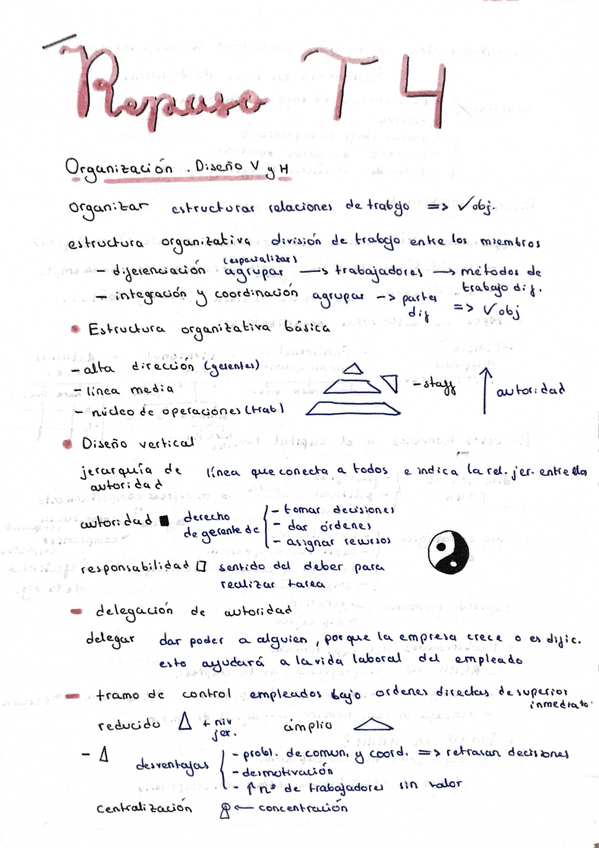 Repaso T4
Organización. Diseño V y H
organizar estructurar relaciones de trabajo => ✓obj.
estructura organizativa división de trabajo entre los miembros
(especializar)
- diferenciación agrupar → trabajadores → métodos de trabajo dif.
- integración y coordinación agrupar → partes dif => ✓obj
• Estructura organizativa básica
- alta dirección (gerentes)
- línea media
- staff
autoridad
- núcleo de operaciones (trab)
• Diseño vertical
jerarquía de autoridad línea que conecta a todos e indica la rel. jer. entre ellos
autoridad ■ derecho de gerante de
- tomar decisiones
- dar órdenes
- asignar recursos
responsabilidad □ sentido del deber para
realizar tarea
- delegación de autoridad
delegar dar poder a alguien, porque la empresa crece o es difíc.
esto ayudará a la vida laboral del empleado
- tramo de control empleados bajo ordenes directas de superior
inmediato.
reducido △ + niv jer. ámplio △
- △ desventajas
- probl. de comun. y coord. => retrasan decisiones
- desmotivación
- ↑ nº de trabajadores sin valor
centralización ← concentración